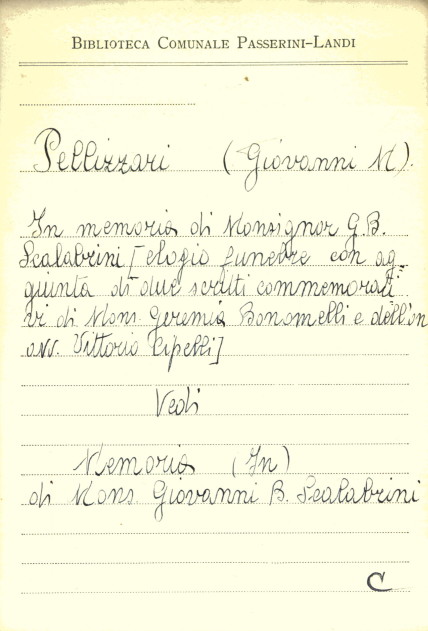 BIBLIOTECA COMUNALE PASSERINI-LANDI
Pellizzari (Giovanni M).
In memoria di Monsignor G.B.
Scalabrini [elogio funebre con ag-
giunta di due scritti commemorati
vi di Mons. Geremia Bonomelli e dell'on
avv. Vittorio Cipelli]
Vedi
Memoria (In)
di Mons. Giovanni B. Scalabrini
C